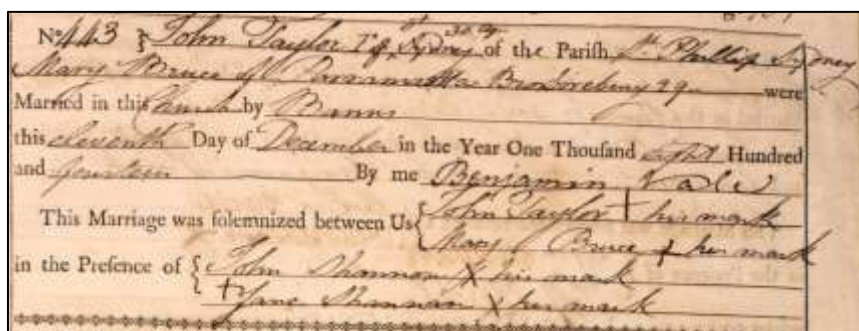 30 ag
No 443 { John Taylor of Sydney of the Parish St. Phillip Sydney
Mary Bruce of Paramatta 29 were
Married in this Church by Banns
this eleventh Day of December in the Year One Thousand Eight Hundred
and fourteen By me Benjamin Vale
This Marriage was solemnized between Us { John Taylor + his mark
Mary Bruce + her mark
in the Presence of { John Shannon X his mark
+ Jane Shannon X her mark